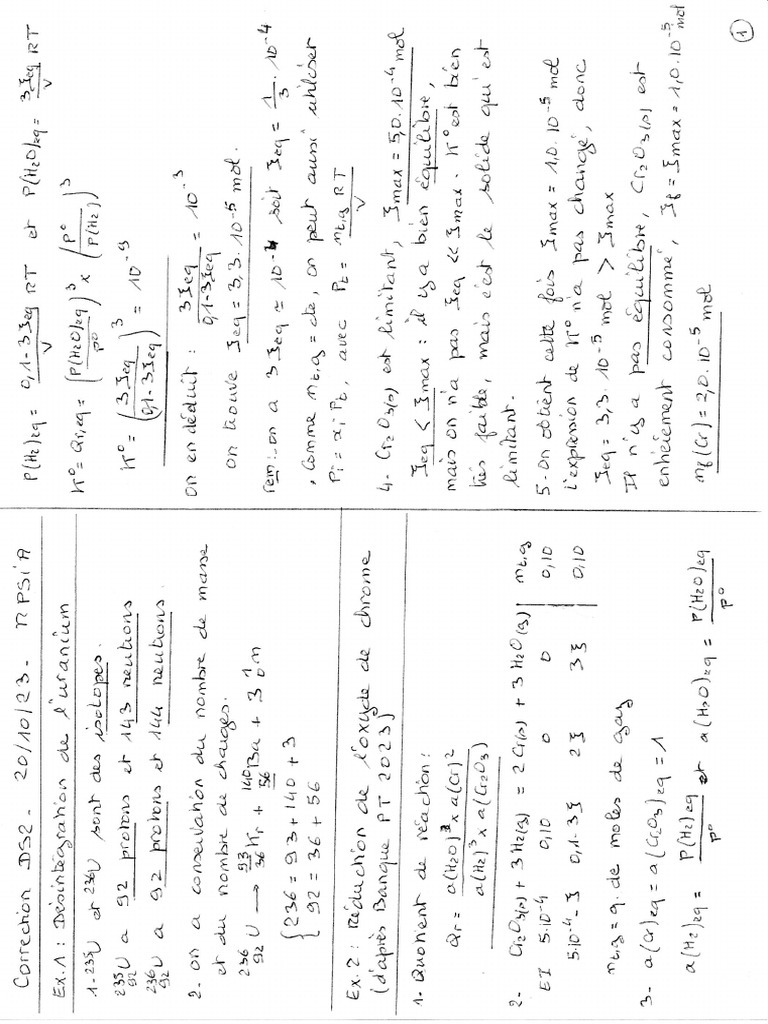 Correction DS2 - 20/10/23 - MPSIA
Ex.1 : Désintégration de l'uranium
1- ²³⁵U et ²³⁶U sont des isotopes.
²³⁵₉₂U a 92 protons et 143 neutrons
²³⁶₉₂U a 92 protons et 144 neutrons
2- on a conservation du nombre de masse
et du nombre de charges.
²³⁶₉₂U → ⁹³₃₆Kr + ¹⁴⁰₅₆Ba + 3 ¹₀n
{ 236 = 93 + 140 + 3
92 = 36 + 56
Ex.2 : Réduction de l'oxyde de chrome
(d'après Banque PT 2023)
1- Quotient de réaction :
Qr = a(H2O)³ × a(Cr)² / a(H2)³ × a(Cr2O3)
2- Cr2O3(s) + 3H2(g) = 2Cr(s) + 3H2O(g) | nt,g
EI 5.10⁻⁴ 0,10 0 0 | 0,10
5.10⁻⁴-ξ 0,1-3ξ 2ξ 3ξ | 0,10
nt,g = q. de moles de gaz
3- a(Cr)eq = a(Cr2O3)eq = 1
a(H2)eq = P(H2)eq / P° et a(H2O)eq = P(H2O)eq / P°
P(H2)eq = 0,1-3ξeq / V RT et P(H2O)eq = 3ξeq / V RT
K° = Qr,eq = (P(H2O)eq / P°)³ × (P° / P(H2))³
K° = (3ξeq / 0,1-3ξeq)³ = 10⁻⁹
On en déduit : 3ξeq / 0,1-3ξeq = 10⁻³
on trouve ξeq = 3,3.10⁻⁵ mol.
rem : on a 3ξeq ≃ 10⁻⁴ soit ξeq = 1/3 . 10⁻⁴
, comme nt,g = cte, on peut aussi utiliser
Pi = xi Pt, avec Pt = nt,g RT / V
4- Cr2O3(s) est limitant, ξmax = 5,0.10⁻⁴ mol
ξeq < ξmax : il y a bien équilibre,
mais on n'a pas ξeq << ξmax. K° est bien
très faible, mais c'est le solide qui est
limitant.
5- On obtient cette fois ξmax = 1,0.10⁻⁵ mol
l'expression de K° n'a pas changé, donc
ξeq = 3,3.10⁻⁵ mol > ξmax
Il n'y a pas équilibre, Cr2O3(s) est
entièrement consommé, ξf = ξmax = 1,0.10⁻⁵ mol
nf(Cr) = 2,0.10⁻⁵ mol
1